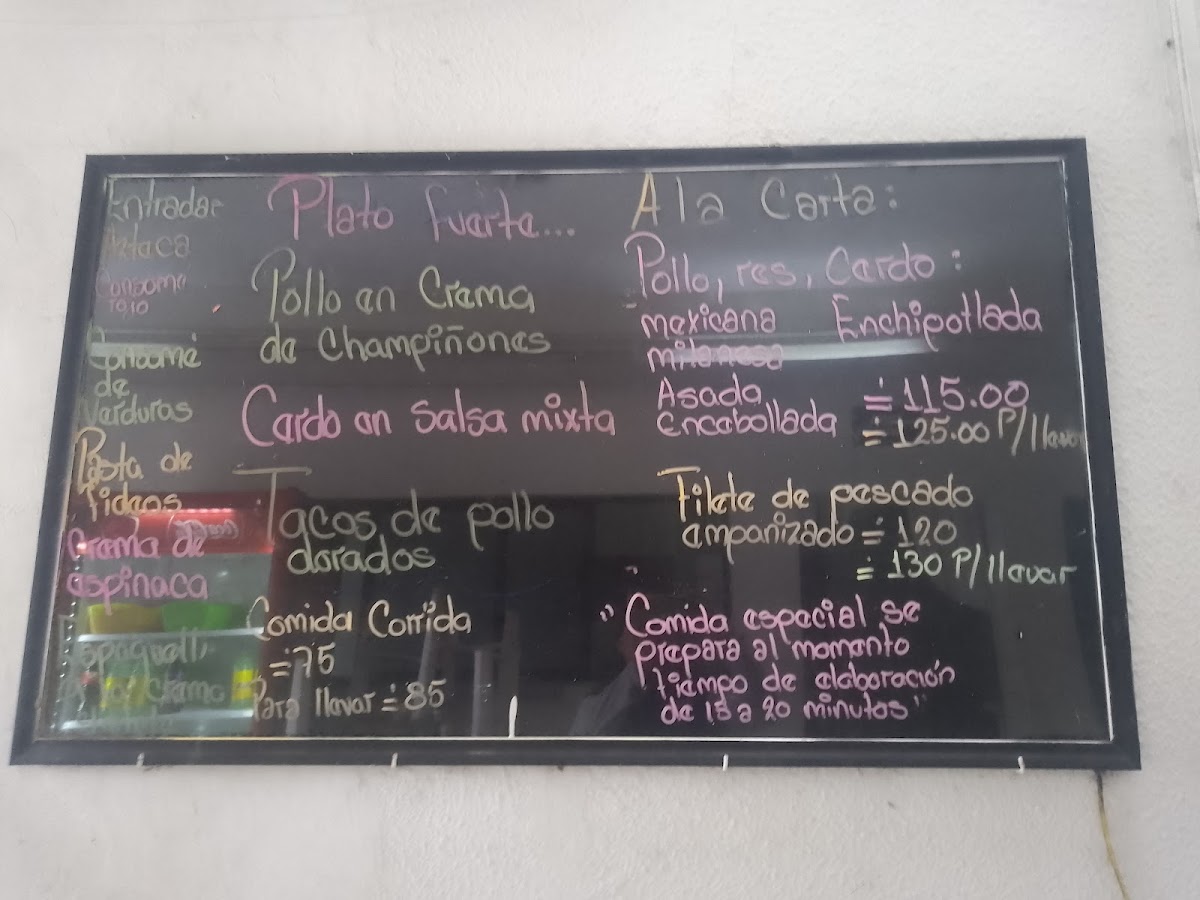 Entradas
Consome
Rojo
Consomé
de
Verduras
Pasta de
Fideos
Crema de
espinaca
Espaguetti
Crema
Plato fuerte...
Pollo en Crema
de Champiñones
Cerdo en salsa mixta
Tacos de pollo
dorados
Comida Corrida
=75
Para llevar = 85
A la Carta:
Pollo, res, Cerdo:
mexicana Enchipotlada
milanesa
Asada =115.00
Encebollada = 125.00 P/llevar
Filete de pescado
empanizado = 120
= 130 P/llevar
"Comida especial se
prepara al momento
tiempo de elaboración
de 15 a 20 minutos"